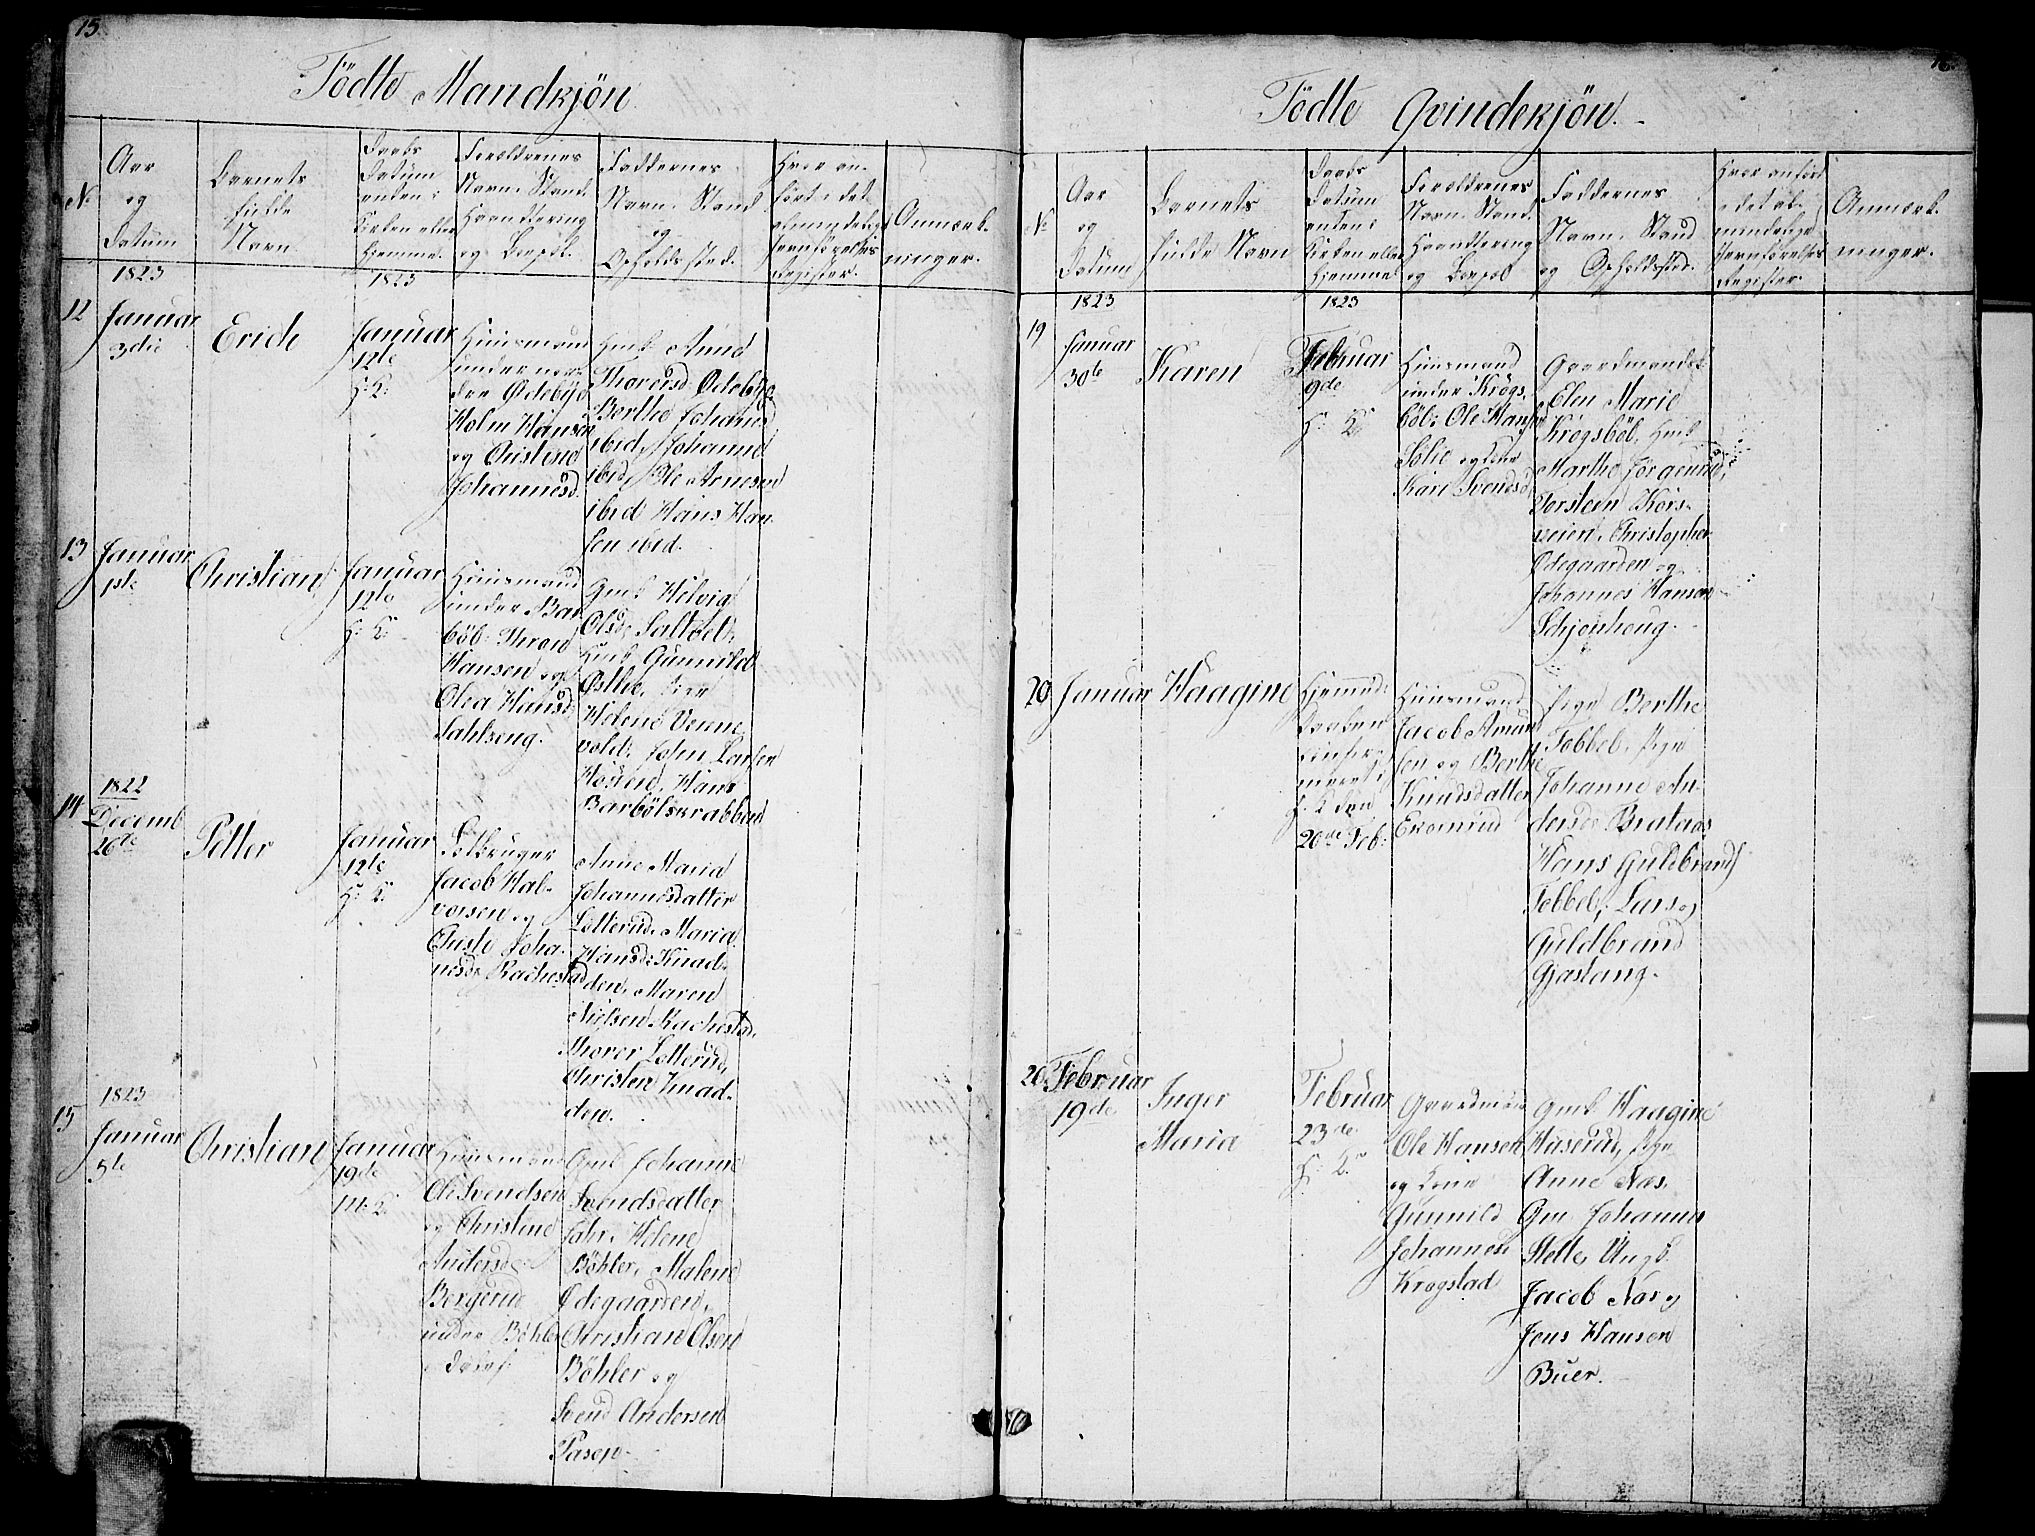 15.
Födte Mandkjön.
No
Aar
og
Datum
Barnets
fulde
Navn.
Daabs
Datum
enten i
Kirken eller
Hjemme.
Forældrenes
Navn. Stand.
Haandtering
og Bopæl.
Faddernes
Navn. Stand
og
Opholdssted.
Hvor an-
fört i det
almindelige
Jevnförelses
Register.
Anmærk-
ninger.
1823
1823
12
Januar
3die
Erich
Januar
12te
H: K:
Huusmand
under nor-
dre Ødebye
Holm Hansen
og Christine
Johannesd.
Gmk Anne
Thoresd. Odeby,
Berthe Johansd
ibid, Johanne
ibid, Ole Arnesen
ibid Hans Han-
sen ibid.
13
Januar
1ste
Christian
Januar
12te
H: K:
Huusmand
under Bar-
böl: Thron
Hansen og
Olea Hansd.
Sahlseng.
Gmk Helvig
Olsd. Saltböl,
Hmk Gunnild
Østlie, Pige
Helene Venne-
vold, John Larsen
Hösten, Hans
Barbölskrabben
14
1822
Decemb
26de
Petter
Januar
12te
H: K:
Jacob Hal-
vorsen og
Christi Joha-
nesd. Rachestad
Anne Maria
Johannesdatter
Letterud, Maria
Hansd: Knad-
den, Maren
Nielsen Rachestad,
Thorer Letterud,
Christen Knad-
den.
15
1823
Januar
5te
Christian
Januar
19de
M: K.
Huusmand
Ole Svendsen
og Christine
Andersd:
Bergerud
under Böhler
Gmk Johanne
Svendsdatter
Fahr, Helene
Böhler, Malene
Ødegaarden,
Christian Olsen
Böhler og
Svend Andersen
Tasep.
16.
Födte Qvindekjön.
No
Aar
og
Datum
Barnets
fulde Navn
Daabs
Datum
enten i
Kirken eller
Hjemme
Forældrenes
Navn. Stand.
Haandtering
og Bopæl
Faddernes
Navn. Stand
og Opholdssted.
Hvor anfört
i det al-
mindelige
Jevnförelses
Register
Anmærk-
ninger.
1823
1823
19
Januar
30te
Karen
Februar
9de
H: K:
Huusmand
under Krogs-
böl: Ole Hansen
Solie og Kone
Kari Svendsd.
Gaardmandsk
Elen Marie
Krogsböl, Hmk
Marthe Jörgensd,
Torsten Kors-
veien, Christopher
Odegaarden og
Johannes Hansen
Schjønhoug.
20
Januar
Haagine
Hjemme-
Daaben
confir-
meret i
H. K. den
20de Feb:
Huusmand
Jacob Amund-
sen og Berthe
Knudsdatter
Exornrud
Pige Berthe
Tobbel, Pige
Johanne An-
dersd: Brataas
Hans Guldbrands
Tobbel, Lars og
Guldbrand
Gjaslang.
20
Februar
19de
Inger
Maria
Februar
23de
H: K:
Gaardmand
Ole Hansen
og Kone
Gunnild
Johannesd.
Krogstad
Gmk Haagine
Huserud, Pige
Anne Næs,
Gm Johannes
Stette, Ungk.
Jacob Næs og
Jens Hansen
Buer.